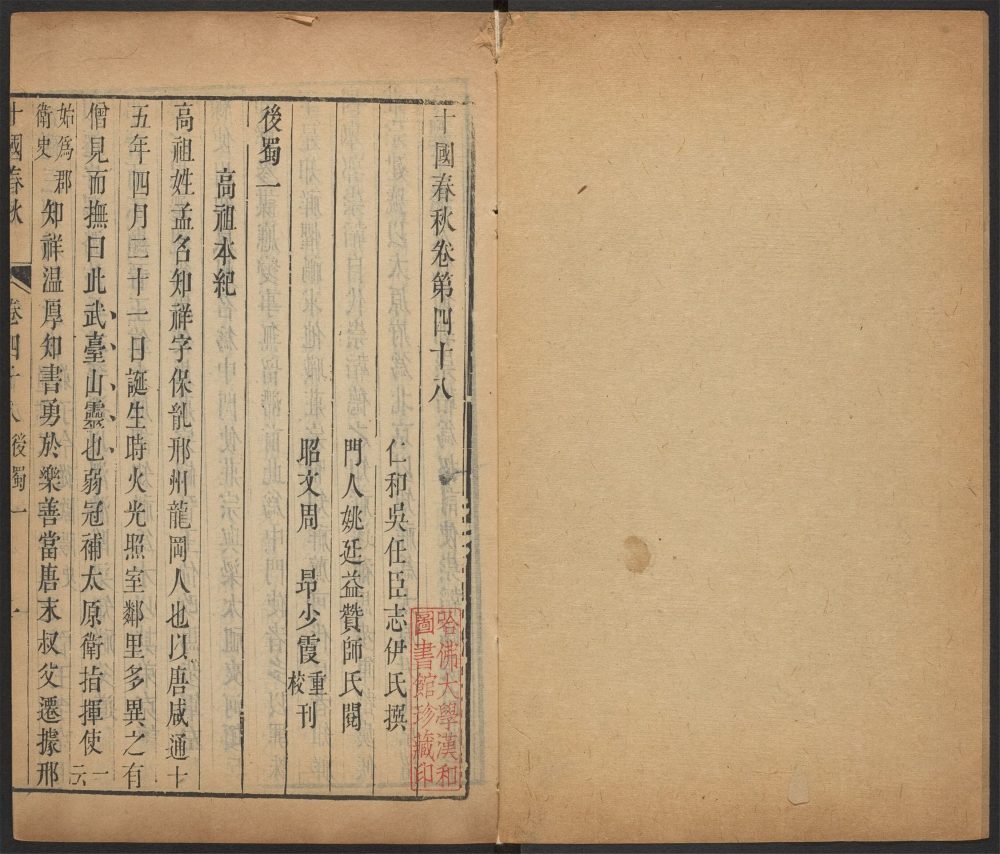 十國春秋卷第四十八
仁和吳任臣志伊氏撰
門人姚廷益贊師氏閱
昭文周昂少霞重校刊
後蜀一
高祖本紀
高祖姓孟名知祥字保胤邢州龍岡人也以唐咸通十
五年四月二十一日誕生時火光照室鄰里多異之有
僧見而撫曰此武臺山靈也弱冠補太原衛指揮使一云
始為郡衛史知祥溫厚知書勇於樂善當唐末叔父遷據邢
十國春秋 卷四十八後蜀一 一
哈佛大學漢和
圖書館珍藏印